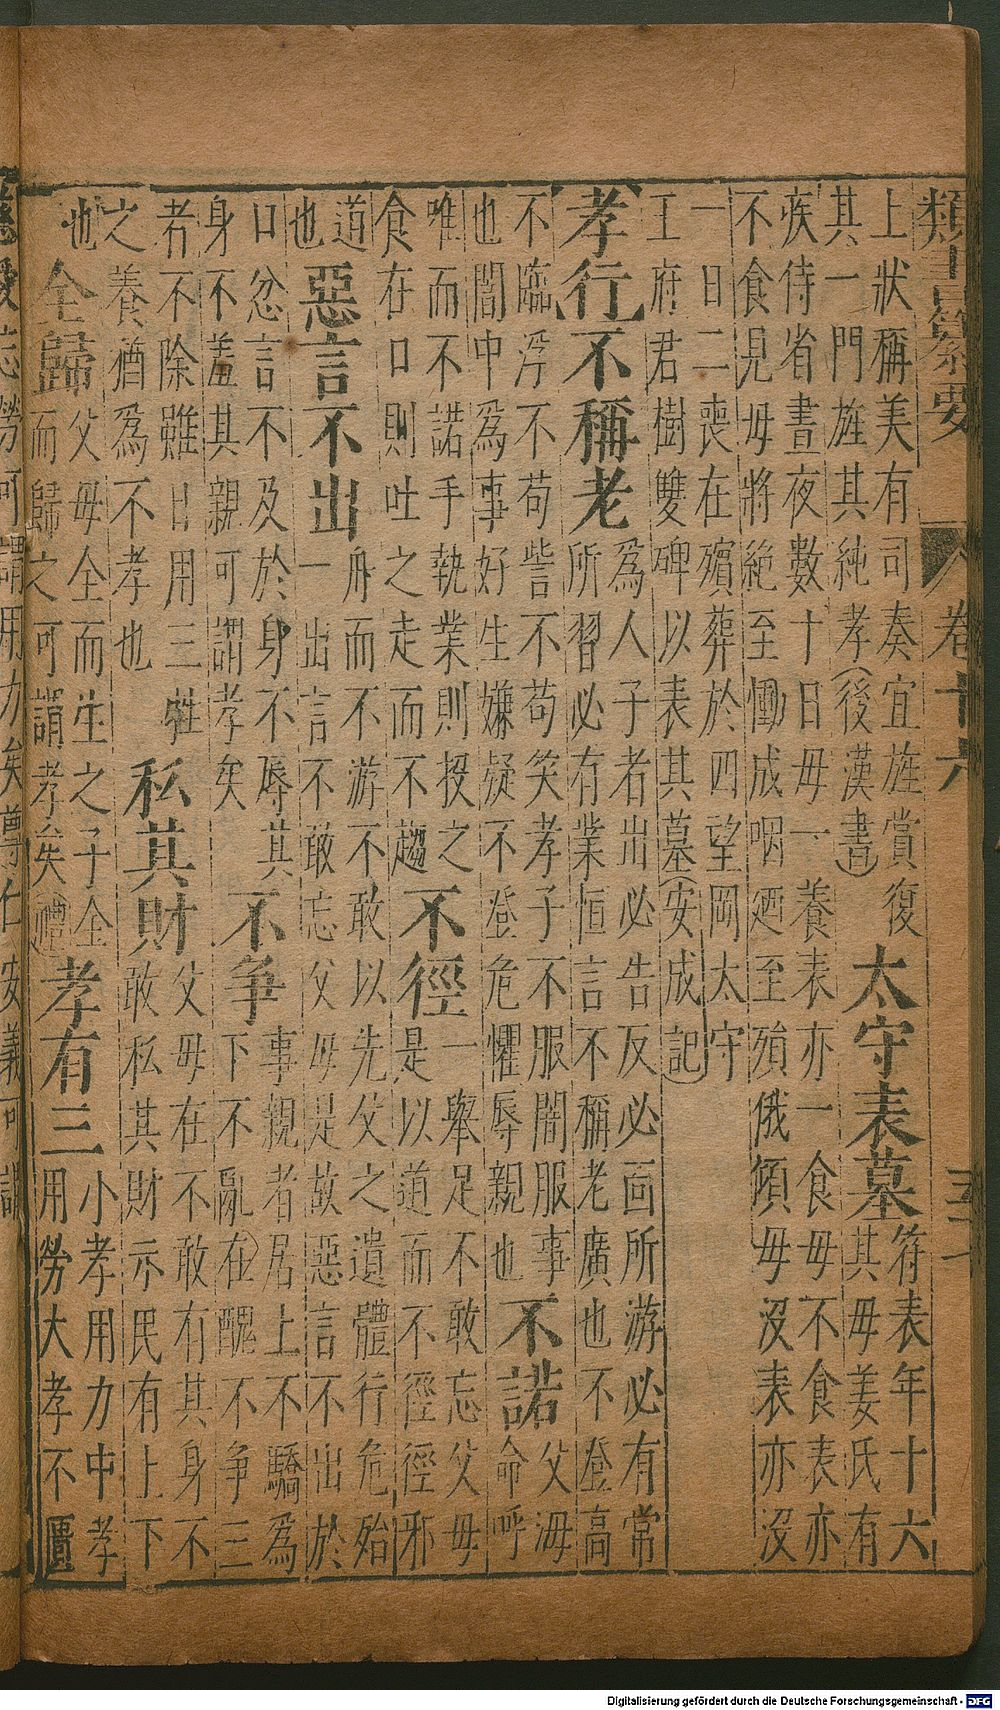 類書纂要 卷十六
上狀稱美有司奏宜旌賞復
其一門旌其純孝(後漢書)
太守表墓
符表年十六
其母姜氏有
疾侍省晝夜數十日母一養表亦一食母不食表亦
不食見母將絶至慟成咽迺至殞俄傾母沒表亦沒
一日二喪在殯葬於四望岡太守
王府君樹雙碑以表其墓(安成記)
孝行不稱老
爲人子者出必告反必面所游必有常
所習必有業恒言不稱老廣也不登高
不臨深不苟訾不苟笑孝子不服闇服事
也闇中爲事好生嫌疑不登危懼辱親也
不諾
父母
命呼
唯而不諾手執業則投之
食在口則吐之走而不趨
不徑
一舉足不敢忘父母
是以道而不徑徑邪
道
也
惡言不出
舟而不游不敢以先父之遺體行危殆
一出言不敢忘父母是故惡言不出於
口忿言不及於身不辱其
身不羞其親可謂孝矣
不爭
事親者居上不驕爲
下不亂在醜不爭三
者不除雖日用三牲
之養猶爲不孝也
私其財
父母在不敢有其身不
敢私其財示民有上下
也
全歸
父母全而生之子全
而歸之可謂孝矣(禮)
孝有三
小孝用力中孝
用勞大孝不匱
慈愛忘勞可謂用力矣尊仁安義可謂
Digitalisierung gefördert durch die Deutsche Forschungsgemeinschaft - DFG